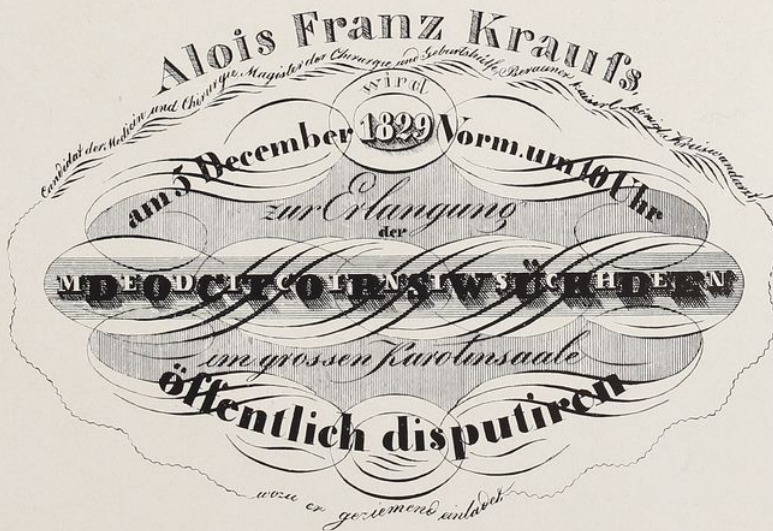 Alois Franz Kraufs
Candidat der Medicin und Chirurgie, Magister der Chirurgie und Geburtshülfe, Berauner kaiserl. königl. Kreiswundarzt
wird
am 5 December 1829 Vorm. um 10 Uhr
zur Erlangung
der
MEDICINISCHEN
DOCTORSWÜRDEN
im grossen Karolinsaale
öffentlich disputiren
wozu er geziemend einladet